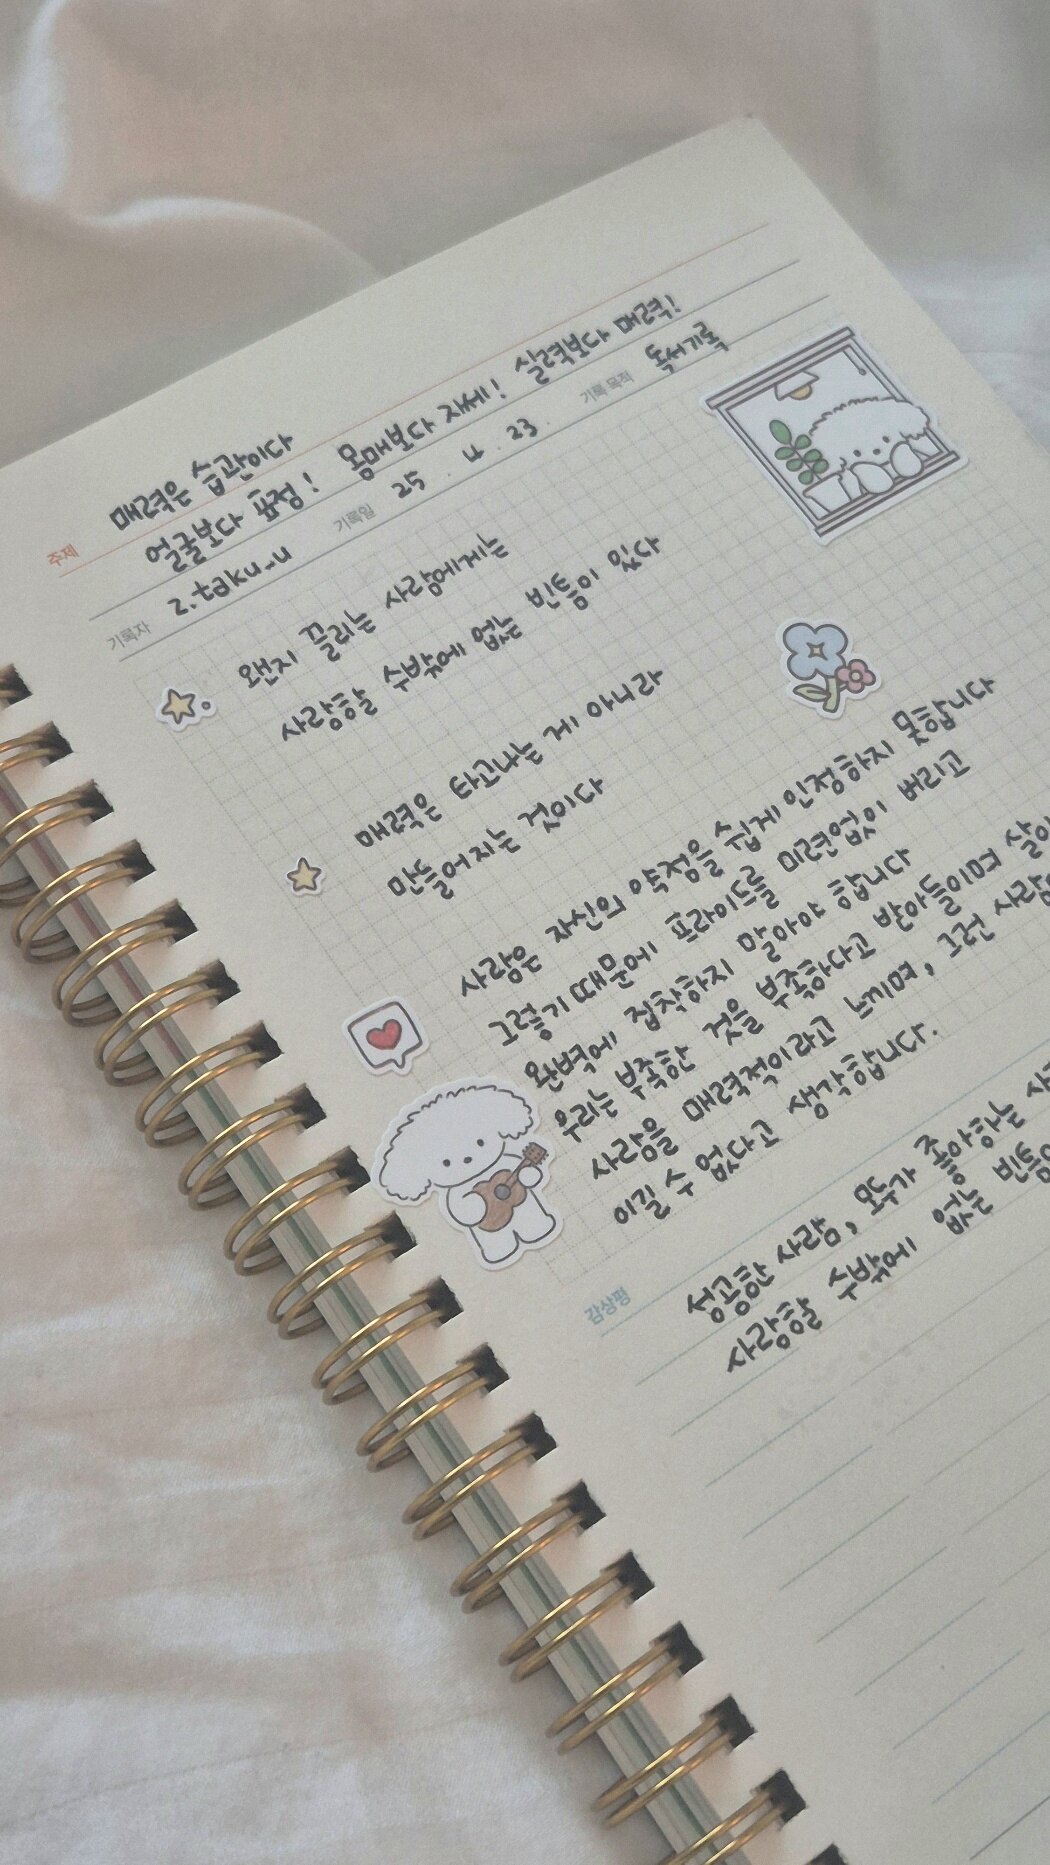 주제 매력은 습관이다
얼굴보다 표정! 몸매보다 자세! 실력보다 매력!
기록자 z.taku_u 기록일 25. 4. 23. 기록 목적 독서기록
왠지 끌리는 사람에게는
사랑할 수밖에 없는 빈틈이 있다
매력은 타고나는 게 아니라
만들어지는 것이다
사람은 자신의 약점을 쉽게 인정하지 못합니다
그렇기 때문에 프라이드를 미련없이 버리고
완벽에 집착하지 말아야 합니다
우리는 부족한 것을 부족하다고 받아들이며
사람을 매력적이라고 느끼며, 그런
이길 수 없다고 생각합니다.
감상평 성공한 사람, 모두가 좋아하는
사랑할 수밖에 없는